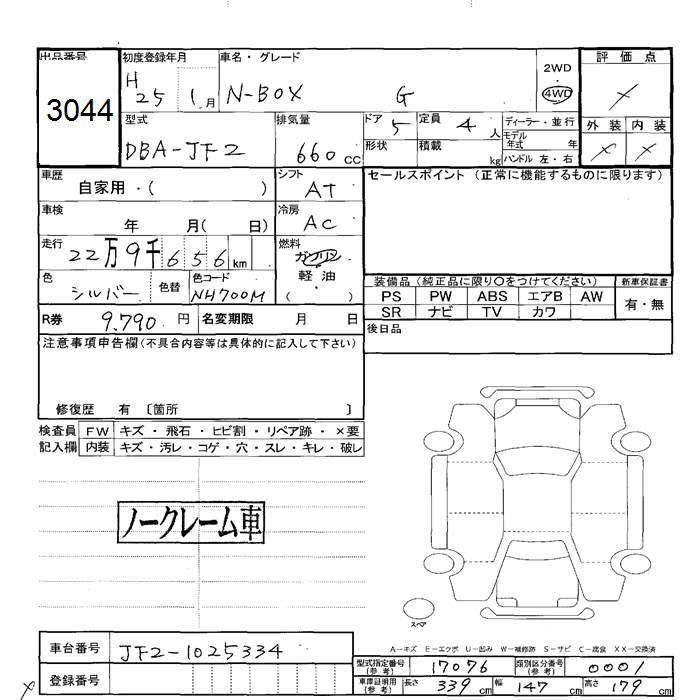 出品番号 初度登録年月 車名・グレード 2WD 評価点
3044 H 25 1月 N-BOX G 4WD ×
型式 排気量 ドア 5 定員 4人 ディーラー・並行 外装 内装
DBA-JF2 660cc 形状 積載 kg モデル年式 年 × ×
ハンドル 左・右
車歴 自家用・( ) シフト AT セールスポイント (正常に機能するものに限ります)
車検 年 月( 日) 冷房 AC
走行 22万9千656km 燃料 ガソリン
軽油
( )
色 シルバー 色替 色コード NH700M
装備品 (純正品に限り○をつけてください) 新車保証書
PS PW ABS エアB AW 有・無
SR ナビ TV カワ
R券 9.790 円 名変期限 月 日 後日品
注意事項申告欄(不具合内容等は具体的に記入して下さい)
修復歴 有 〔箇所 〕
検査員 FW キズ・飛石・ヒビ割・リペア跡・×要
記入欄 内装 キズ・汚レ・コゲ・穴・スレ・キレ・破レ
ノークレーム車
スペア
A-キズ E-エクボ U-凹み W-補修跡 S-サビ C-腐食 XX-交換済
車台番号 JF2-1025334
登録番号
型式指定番号(参考) 17076 類別区分番号(参考) 0001
車庫証明用(参考) 長さ 339cm 幅 147cm 高さ 179cm
×